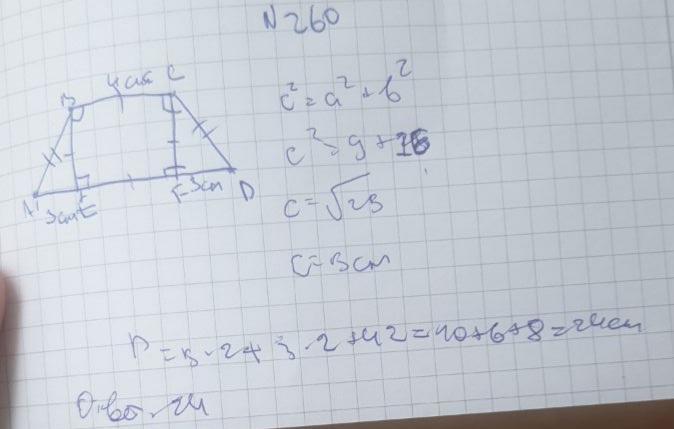 N 260
B 4 см C
A 3 см E F 3 см D
c² = a² + b²
c² = 9 + 16
c = √25
c = 5 см
P = 5·2 + 3·2 + 4·2 = 10 + 6 + 8 = 24 см
Ответ 24